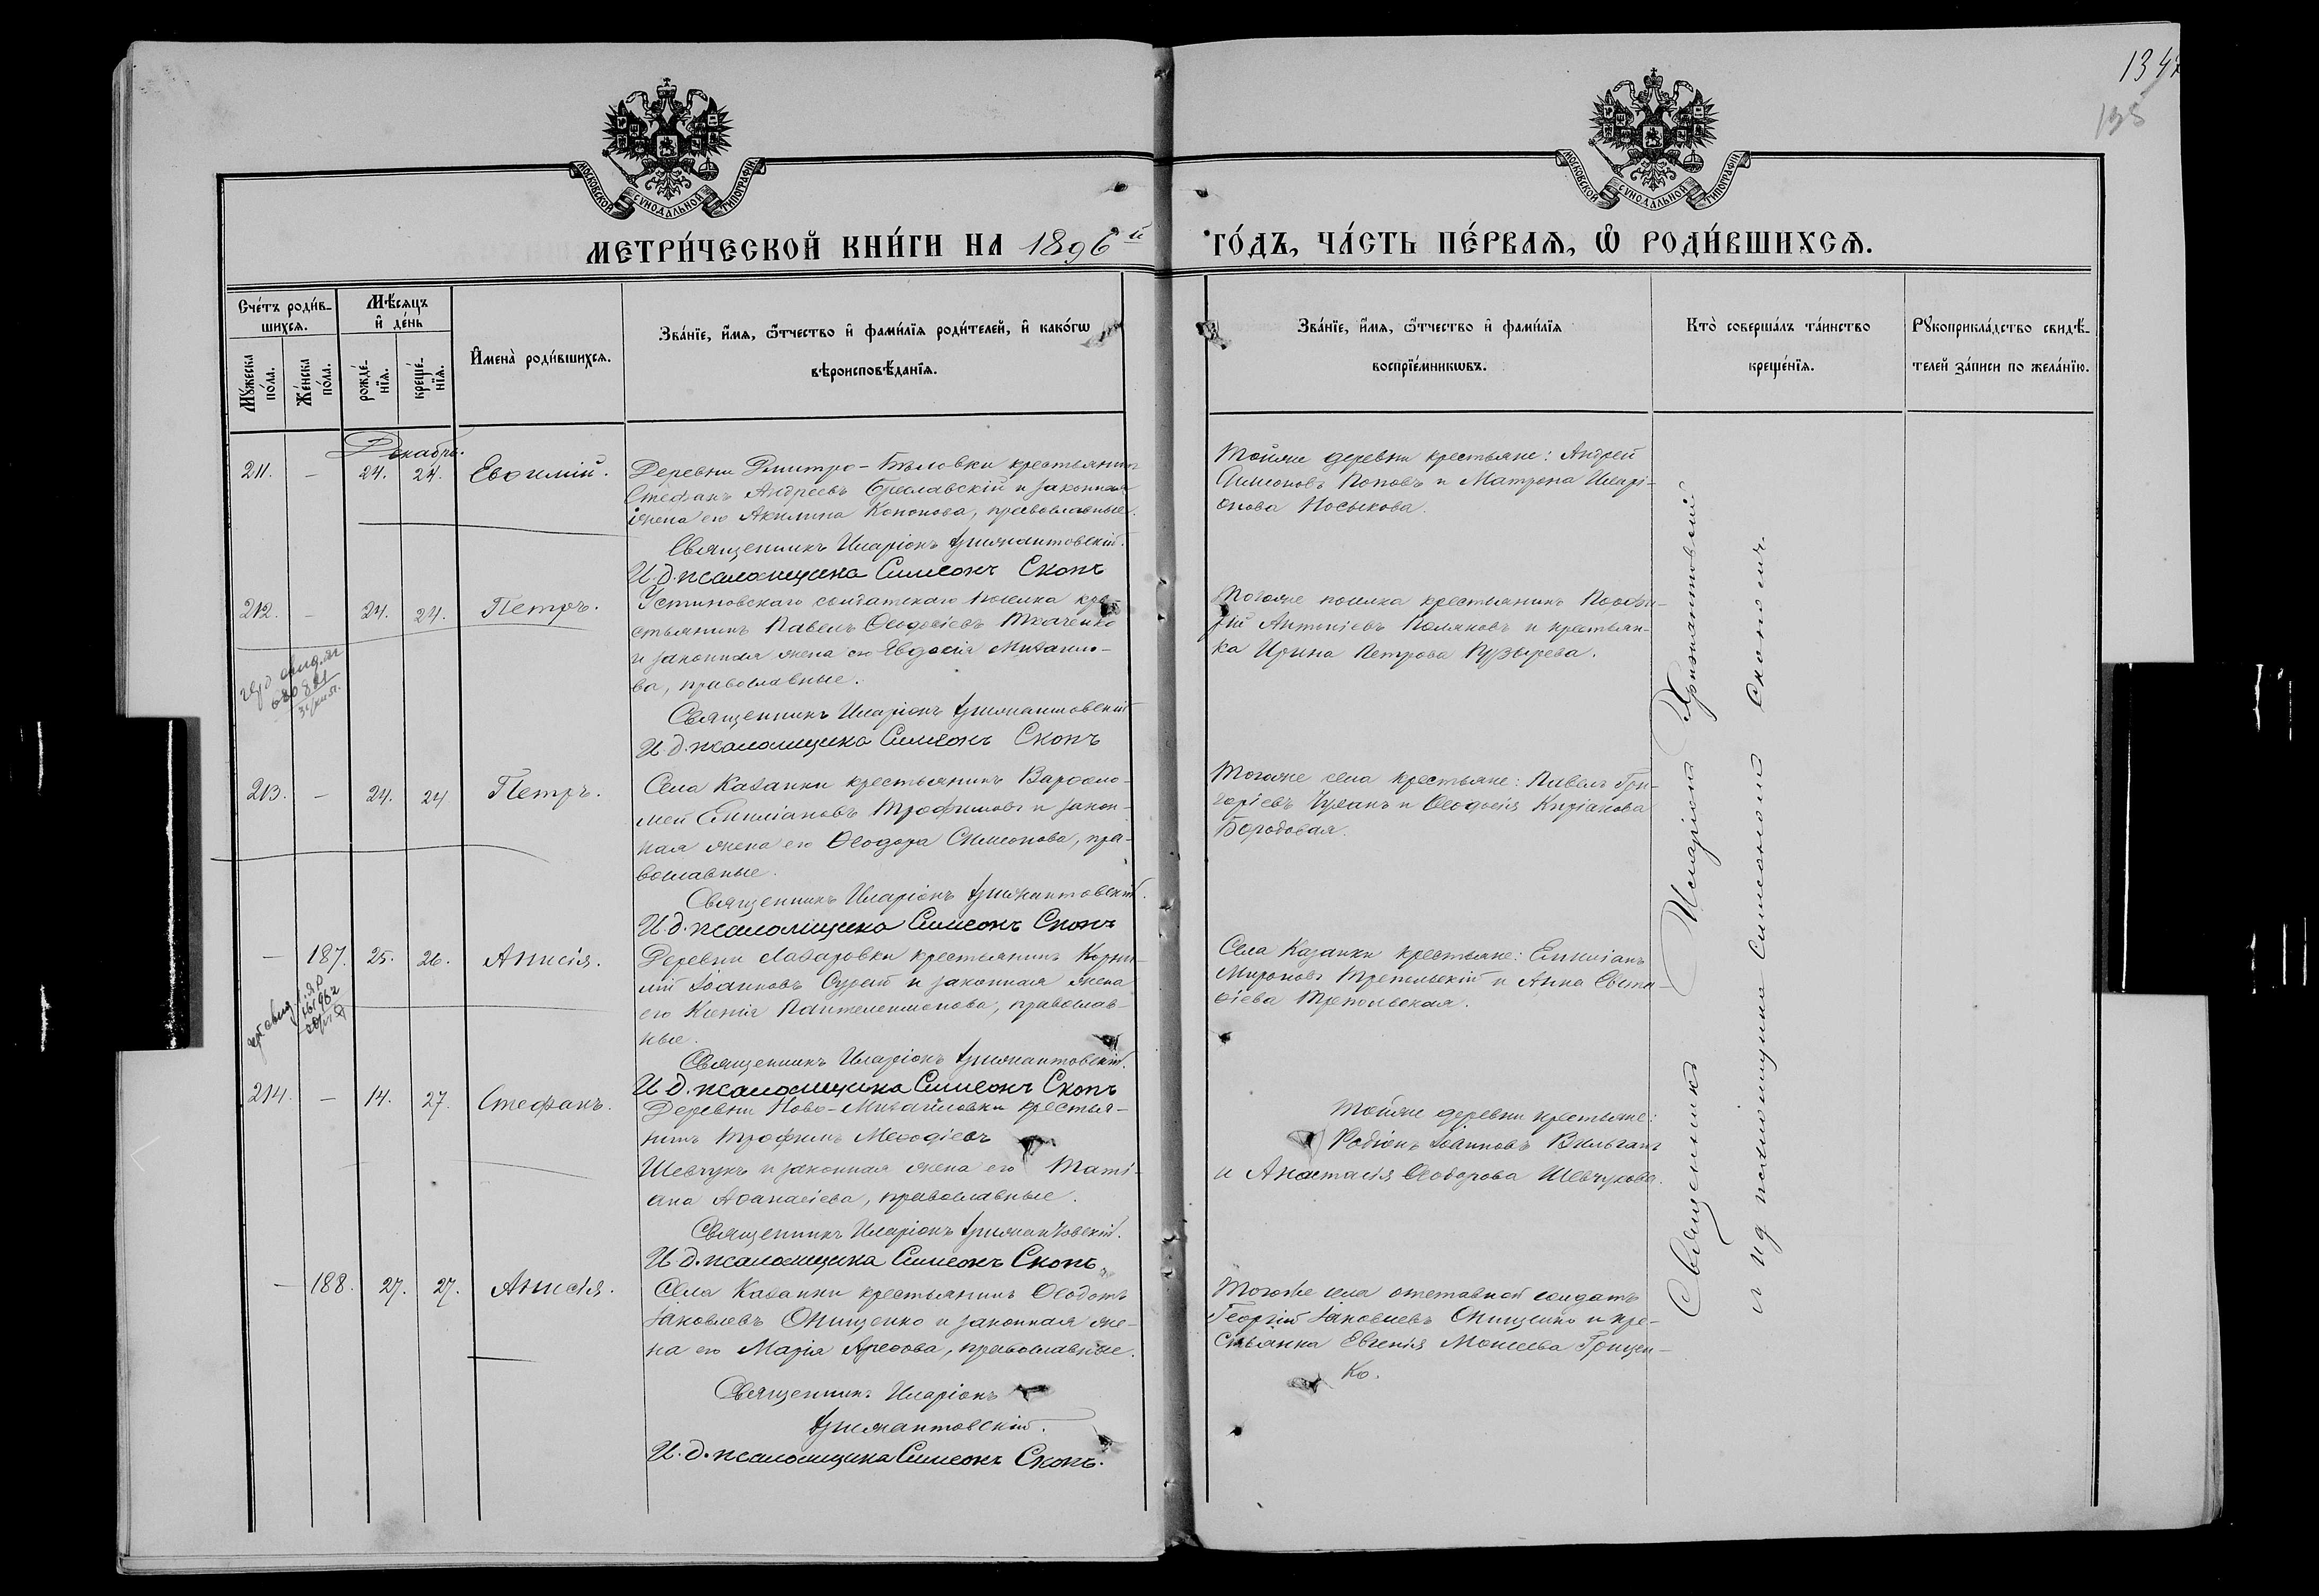 134
135
МОСКОВСКОЙ СУНОДАЛЬНОЙ ТИПОГРАФІИ
МОСКОВСКОЙ СУНОДАЛЬНОЙ ТИПОГРАФІИ
МЕТРИ́ЧЕСКОЙ КНИ́ГИ НА 1896й
ГО́ДЪ, ЧА́СТЬ ПЕ́РВАѦ, Ѽ РОДИ́ВШИХСѦ.
Сче́тъ роди́в-
шихсѧ.
Мꙋ́жеска по́ла.
Же́нска по́ла.
Мѣ́сѧцъ и҆ де́нь
рожде́-нїѧ.
креще́-нїѧ.
И҆мена̀ роди́вшихсѧ.
Зва́нїе, и҆́мѧ, ѻ҆́тчество и҆ фами́лїѧ роди́телей, и҆ како́гѡ
вѣроисповѣ́данїѧ.
Зва́нїе, и҆́мѧ, ѻ҆́тчество и҆ фами́лїѧ
воспрїе́мникѡвъ.
Кто̀ соверша́лъ та́инство
креще́нїѧ.
Рꙋкоприкла́дство свидѣ́-
телей за́писи по жела́нїю.
Декабрь.
211. — 24. 24. Евѳимій.
Деревни Дмитро-Бѣловки крестьянинъ
Стефанъ Андреевъ Бреславскій и законная
жена его Акилина Кононова, православные.
Священникъ Иларіонъ Крижантовскій.
И. д. псаломщика Симеонъ Скопъ
Тойже деревни крестьяне: Андрей
Симеоновъ Поповъ и Матрона Иларі-
онова Носыкова.
212. — 24. 24. Петръ.
Устиновскаго солдатскаго поселка кре-
стьянинъ Павелъ Ѳеодосіевъ Ткаченко
и законная жена его Евдокія Михаило-
ва, православные.
Священникъ Иларіонъ Крижантовскій
И. д. псаломщика Симеонъ Скопъ
Тогоже поселка крестьянинъ Порфи-
рій Антоніевъ Поляковъ и крестьян-
ка Ирина Петрова Пузырева.
213. — 24. 24 Петръ.
Села Казанки крестьянинъ Варѳоло-
мей Емиліановъ Трофимовъ и закон-
ная жена его Ѳеодора Симеонова, пра-
вославные.
Священникъ Иларіонъ Крижантовскій.
И. д. псаломщика Симеонъ Скопъ
Тогоже села крестьяне: Павелъ Гри-
горіевъ и Ѳеодосія Киріакова
Бородовая.
— 187. 25. 26. Анисія.
Деревни Лазаровки крестьянинъ Корни-
лій Іоанновъ и законная жена
его Ксенія Пантелеимонова, православ-
ные.
Священникъ Иларіонъ Крижантовскій.
И. д. псаломщика Симеонъ Скопъ
Села Казанки крестьяне: Емиліанъ
Мироновъ и Анна Евста-
фіева
214. — 14. 27. Стефанъ.
Деревни Ново-Михайловки крестья-
нинъ Трофимъ Меѳодіевъ
Шевчукъ и законная жена его Таті-
ана Аѳанасіева, православные.
Священникъ Иларіонъ Крижантовскій.
И. д. псаломщика Симеонъ Скопъ.
Тойже деревни крестьяне:
Родіонъ Іоанновъ
и Анастасія Ѳеодорова Шевчукова.
— 188. 27. 27. Анисія.
Села Казанки крестьянинъ Ѳеодотъ
Іаковлевъ Онищенко и законная же-
на его Марія Ареѳова, православные.
Священникъ Иларіонъ
Крижантовскій.
И. д. псаломщика Симеонъ Скопъ.
Тогоже села отставной солдатъ
Георгій Іаковлевъ Онищенко и кре-
стьянка Евгенія Моисеева Грищен-
ко.
Священникъ Иларіонъ Крижантовскій
и ид псаломщика Симеономъ Скопомъ.